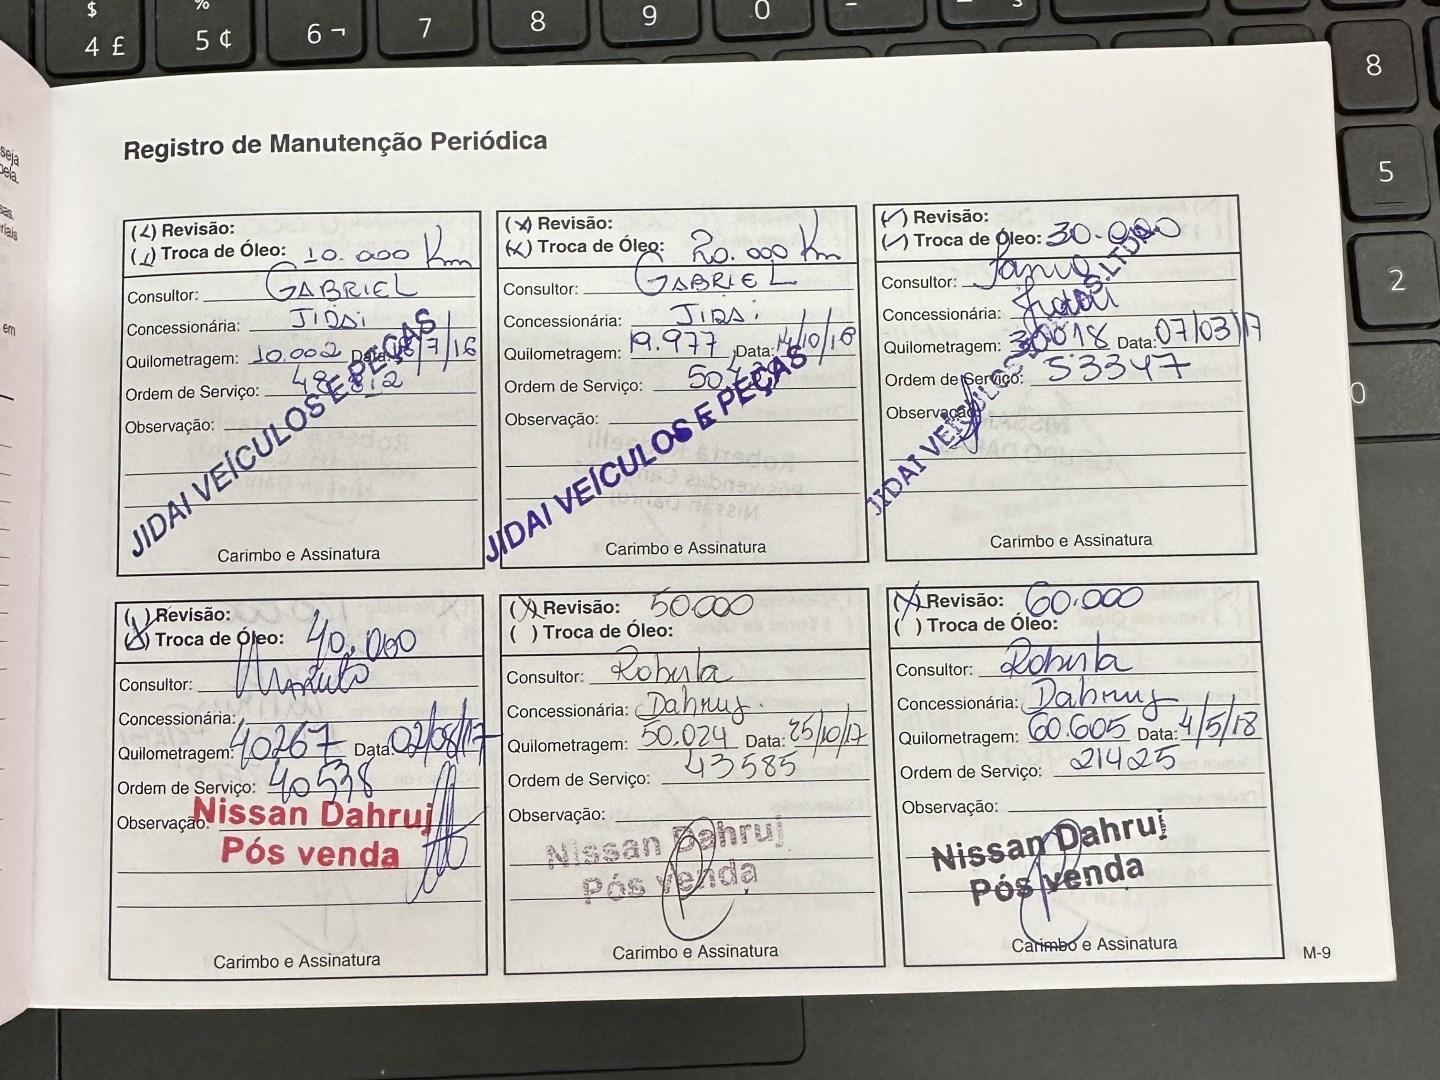 $
4 £
%
5 ¢
6 ¬
7
8
9
0
8
5
2
0
seja
pela.
em
Registro de Manutenção Periódica
Revisão:
Troca de Óleo: 10.000 Km
Consultor: GABRIEL
Concessionária: JIDAi
Quilometragem: 10.002 Data: /7/16
Ordem de Serviço: 48
Observação:
JIDAI VEÍCULOS E PEÇAS
Carimbo e Assinatura
(X) Revisão:
(X) Troca de Óleo: 20.000 Km
Consultor: GABRIEL
Concessionária: JIDAi
Quilometragem: 19.977 Data: 14/10/16
Ordem de Serviço: 50
Observação:
JIDAI VEÍCULOS E PEÇAS
Carimbo e Assinatura
(✓) Revisão:
(✓) Troca de Óleo: 30.000
Consultor:
Concessionária:
Quilometragem: 30018 Data: 07/03/17
Ordem de Serviço: 53347
Observação:
JIDAI VEÍCULOS LTDA
Carimbo e Assinatura
Revisão:
(X) Troca de Óleo: 40.000
Consultor:
Concessionária:
Quilometragem: 40267 Data: 02/08/17
Ordem de Serviço: 40538
Observação:
Nissan Dahruj
Pós venda
Carimbo e Assinatura
(X) Revisão: 50.000
( ) Troca de Óleo:
Consultor: Roberta
Concessionária: Dahruj.
Quilometragem: 50.024 Data: 25/10/17
Ordem de Serviço: 43585
Observação:
Nissan Dahruj
Pós venda
Carimbo e Assinatura
(X) Revisão: 60.000
( ) Troca de Óleo:
Consultor: Roberta
Concessionária: Dahruj
Quilometragem: 60.605 Data: 4/5/18
Ordem de Serviço: 21425
Observação:
Nissan Dahruj
Pós venda
Carimbo e Assinatura
M-9